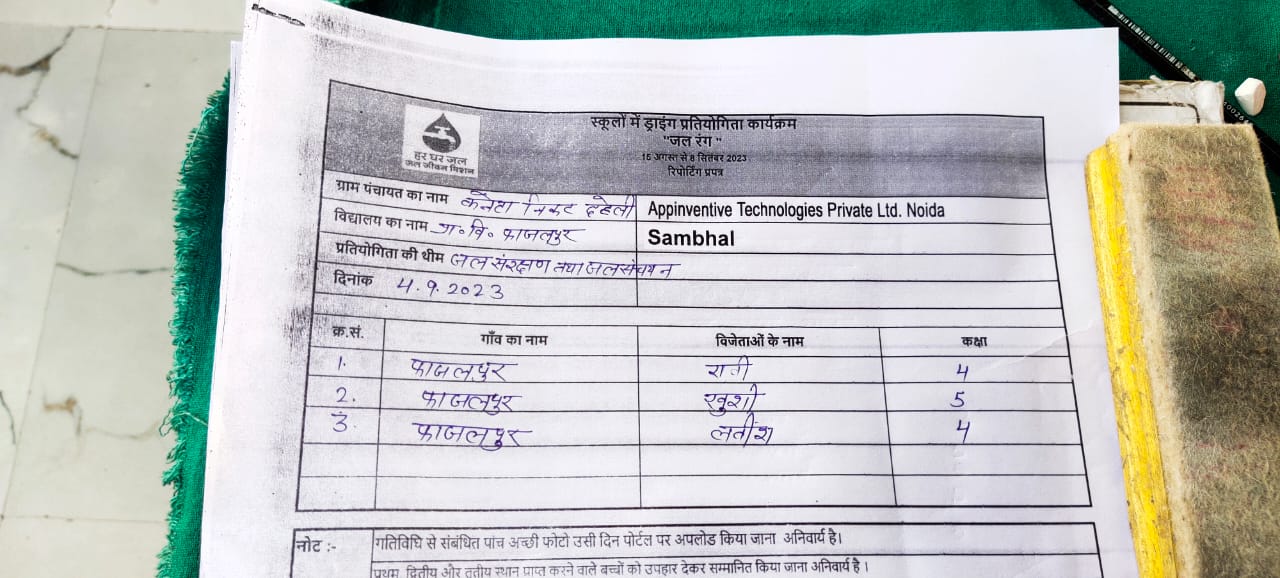 हर घर जल
जल जीवन मिशन
स्कूलों में ड्राइंग प्रतियोगिता कार्यक्रम
"जल रंग "
15 अगस्त से 8 सितंबर 2023
रिपोर्टिंग प्रपत्र
ग्राम पंचायत का नाम कैनटा निकट दहेली Appinventive Technologies Private Ltd. Noida
विद्यालय का नाम प्रा॰ वि॰ फाजलपुर Sambhal
प्रतियोगिता की थीम जल संरक्षण तथा जल संचयन
दिनांक 4.9.2023
क्र.सं. गाँव का नाम विजेताओं के नाम कक्षा
1. फाजलपुर रानी 4
2. फाजलपुर खुशी 5
3. फाजलपुर 4
नोट :- गतिविधि से संबंधित पांच अच्छी फोटो उसी दिन पोर्टल पर अपलोड किया जाना अनिवार्य है।
प्रथम, द्वितीय और तृतीय स्थान प्राप्त करने वाले बच्चों को उपहार देकर सम्मानित किया जाना अनिवार्य है ।